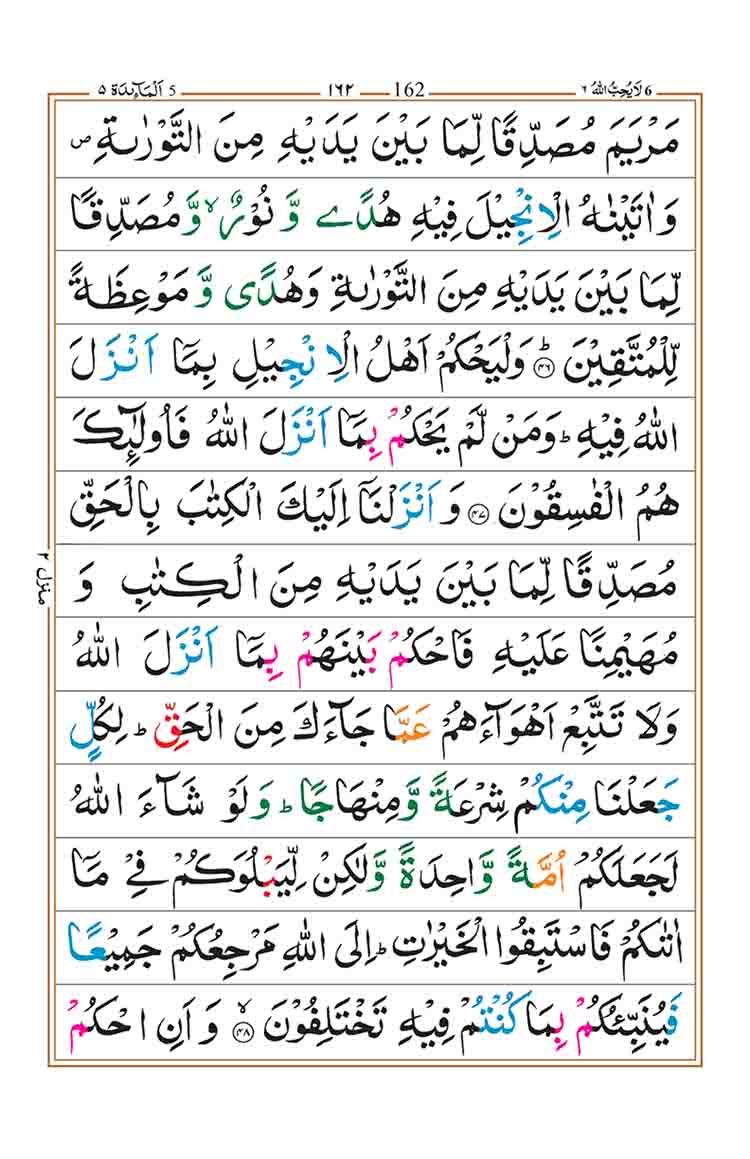 6 لَا يُحِبُّ اللّٰهُ ۶ 162 ۱۶۲ 5 اَلْمَآىِٕدَة ۵
مَرْيَمَ مُصَدِّقًا لِّمَا بَيْنَ يَدَيْهِ مِنَ التَّوْرٰىةِ ص
وَاٰتَيْنٰهُ الْاِنْجِيْلَ فِيْهِ هُدًى وَّ نُوْرٌ ۙ وَّ مُصَدِّقًا
لِّمَا بَيْنَ يَدَيْهِ مِنَ التَّوْرٰىةِ وَهُدًى وَّ مَوْعِظَةً
لِّلْمُتَّقِيْنَ ؕ ﴿۴۶﴾ وَلْيَحْكُمْ اَهْلُ الْاِنْجِيْلِ بِمَاۤ اَنْزَلَ
اللّٰهُ فِيْهِ ؕ وَمَنْ لَّمْ يَحْكُمْ بِمَاۤ اَنْزَلَ اللّٰهُ فَاُولٰٓئِكَ
هُمُ الْفٰسِقُوْنَ ﴿۴۷﴾ وَ اَنْزَلْنَاۤ اِلَيْكَ الْكِتٰبَ بِالْحَقِّ
مُصَدِّقًا لِّمَا بَيْنَ يَدَيْهِ مِنَ الْكِتٰبِ وَ
مُهَيْمِنًا عَلَيْهِ فَاحْكُمْ بَيْنَهُمْ بِمَاۤ اَنْزَلَ اللّٰهُ
وَلَا تَتَّبِعْ اَهْوَآءَهُمْ عَمَّا جَآءَكَ مِنَ الْحَقِّ ؕ لِكُلٍّ
جَعَلْنَا مِنْكُمْ شِرْعَةً وَّمِنْهَاجًا ؕ وَلَوْ شَآءَ اللّٰهُ
لَجَعَلَكُمْ اُمَّةً وَّاحِدَةً وَّلٰكِنْ لِّيَبْلُوَكُمْ فِيْ مَاۤ
اٰتٰىكُمْ فَاسْتَبِقُوا الْخَيْرٰتِ ؕ اِلَى اللّٰهِ مَرْجِعُكُمْ جَمِيْعًا
فَيُنَبِّئُكُمْ بِمَا كُنْتُمْ فِيْهِ تَخْتَلِفُوْنَ ۙ ﴿۴۸﴾ وَ اَنِ احْكُمْ
منزل ۲